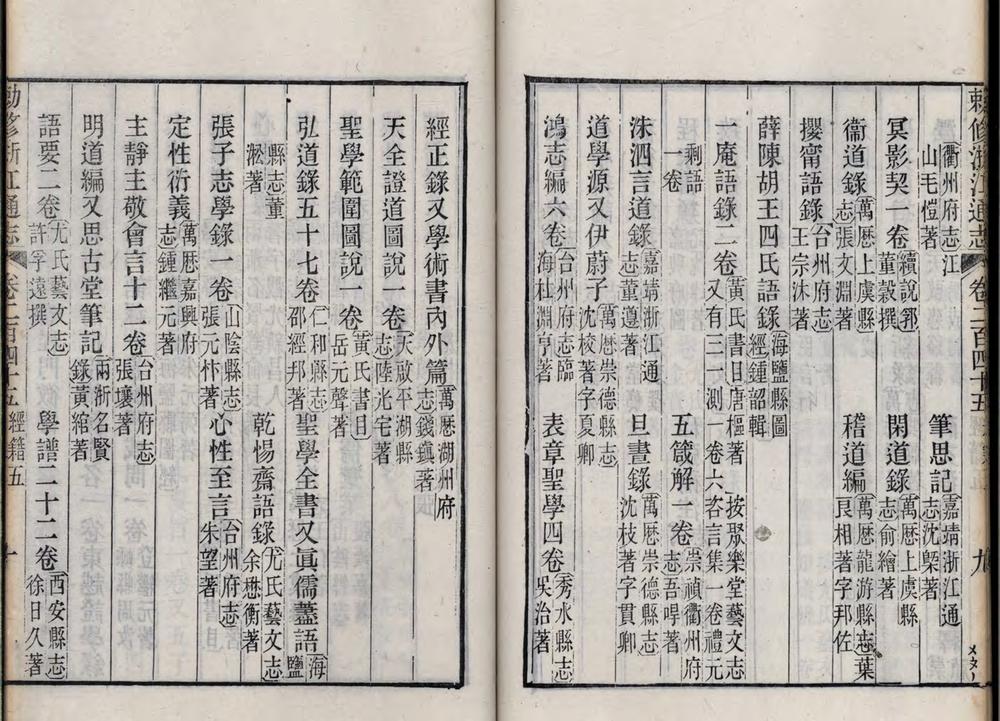 敕修浙江通志 卷二百四十五 經籍五 九
衢州府志江山毛愷著 筆思記 嘉靖浙江通志沈槩著
冥影契一卷 續說郛董穀撰 閑道錄 萬厯上虞縣志俞繪著
衞道錄 萬厯上虞縣志張文淵著 稽道編 萬厯龍游縣志葉良相著字邦佐
攖寧語錄 台州府志王宗沐著
薛陳胡王四氏語錄 海鹽縣圖經鍾韶輯
一庵語錄二卷 黃氏書目唐樞著 按聚樂堂藝文志又有三一測一卷六咨言集一卷禮元
剩語一卷
洙泗言道錄 嘉靖浙江通志董遵著 五箴解一卷 崇禎衢州府志吾㫝著
道學源又伊蔚子 萬厯崇德縣志沈棱著字夏卿 旦晝錄 萬厯崇德縣志沈枝著字貫卿
鴻志編六卷 台州府志臨海杜淵亨著 表章聖學四卷 秀水縣志吳治著
經正錄又學術書內外篇 萬厯湖州府志錢鎮著
天全證道圖說一卷 天啟平湖縣志陸光宅著
聖學範圍圖說一卷 黃氏書目岳元聲著
弘道錄五十七卷 仁和縣志邵經邦著 聖學全書又眞儒藎語 海鹽
縣志董淞著 乾惕齋語錄 尤氏藝文志余懋衡著
張子志學錄一卷 山陰縣志張元忭著 心性至言 台州府志朱望著
定性衍義 萬厯嘉興府志鍾繼元著
主靜主敬會言十二卷 台州府志張壤著
明道編又思古堂筆記 兩浙名賢錄黃綰著
語要二卷 尤氏藝文志許孚遠撰 學譜二十二卷 西安縣志徐日久著
勅修浙江通志 卷二百四十五 經籍五 十